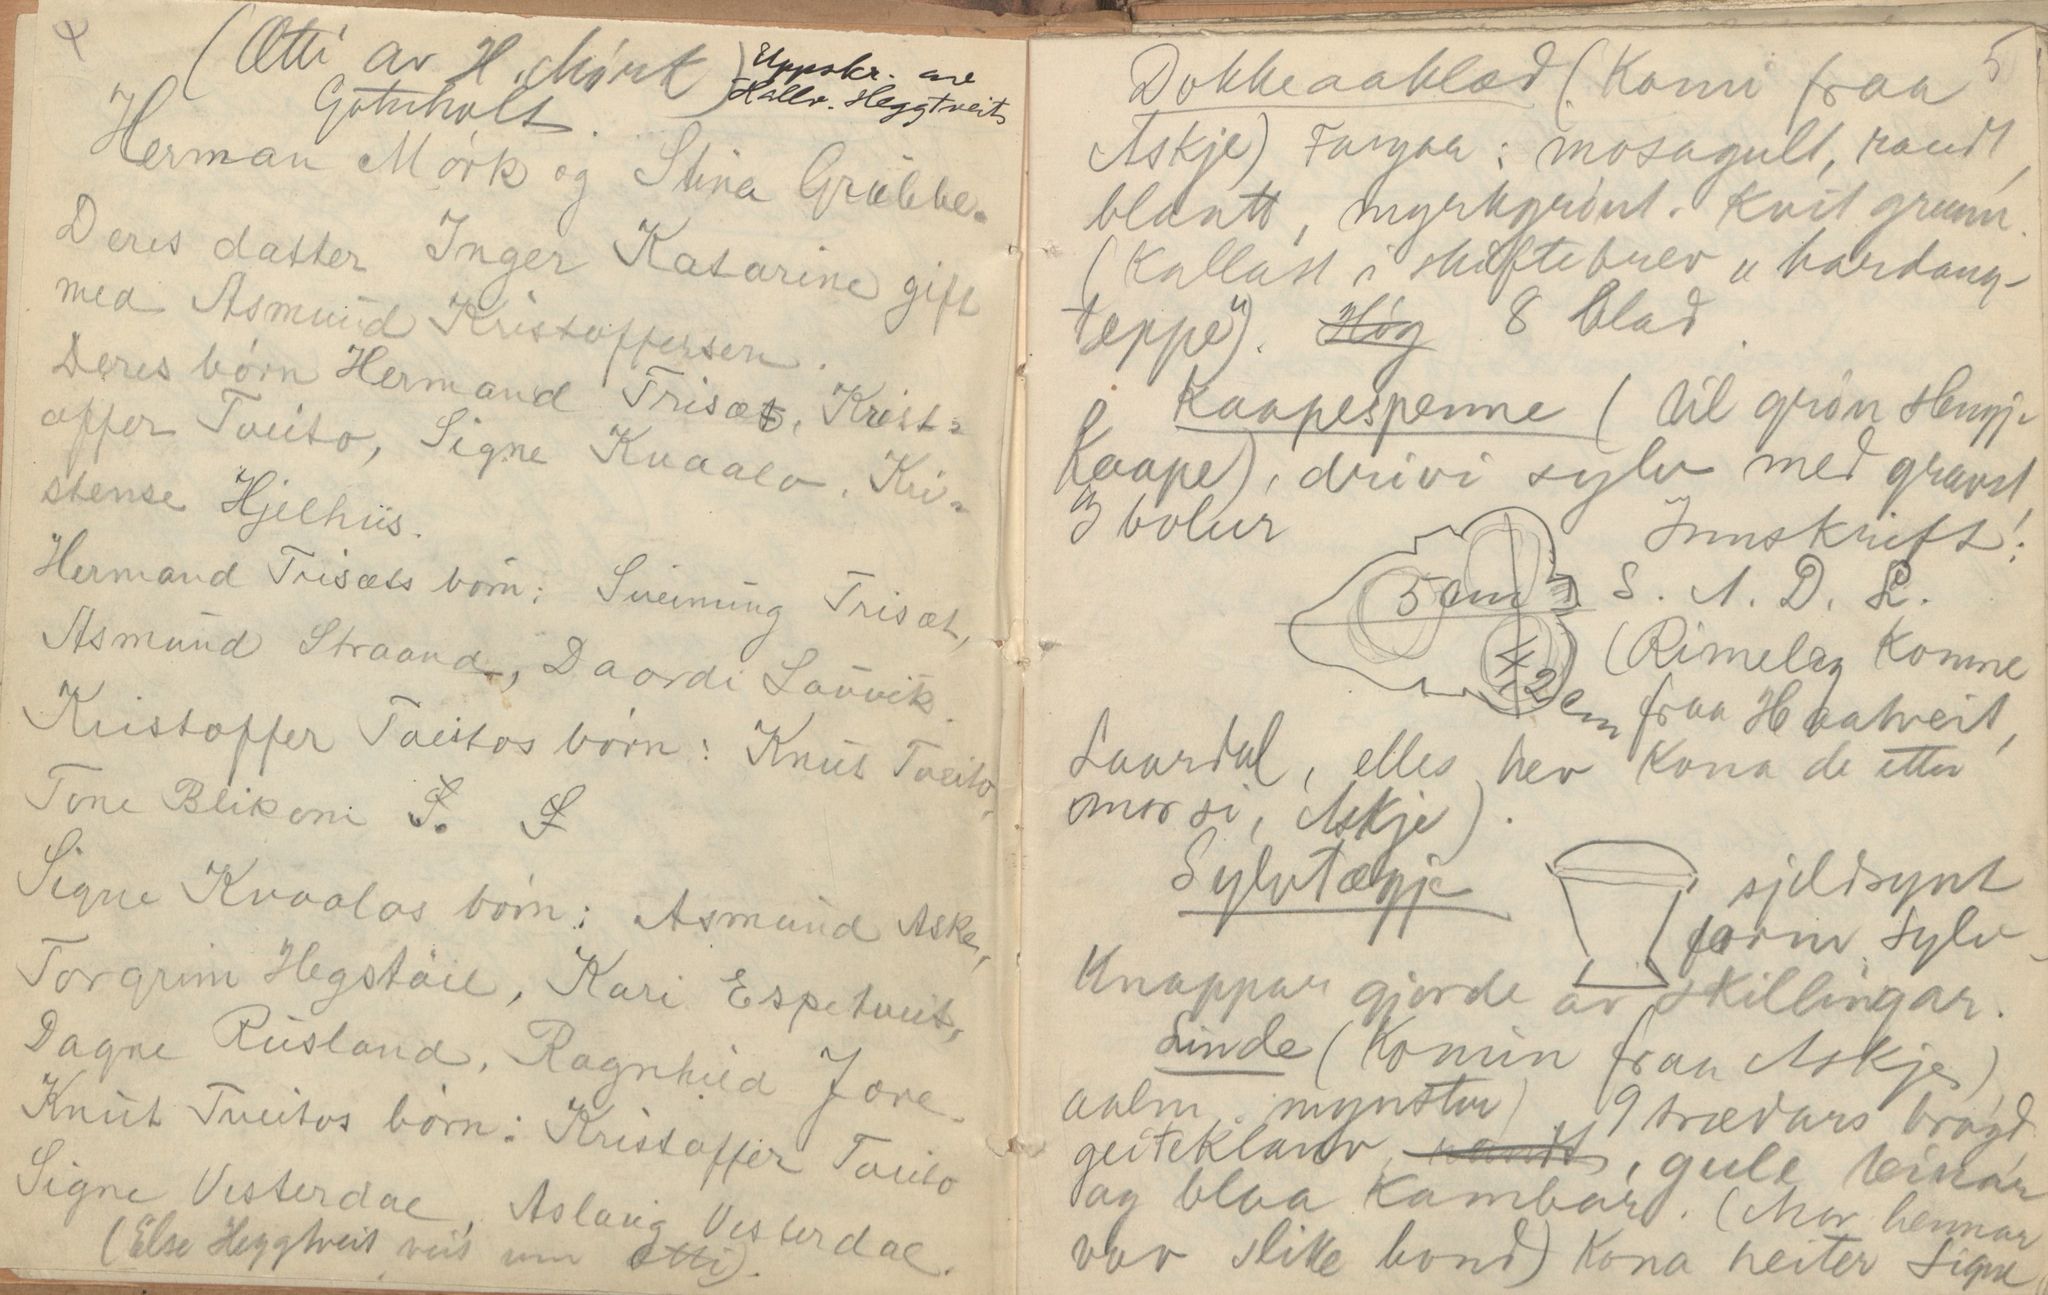 (Ætti av H. Mórk)
Gøtuholt.
Uppskr. av
Hallv. Heggtveit
Herman Mórk og Stina Grübbe.
Deres datter Inger Katarine gift
med Asmund Kristoffersen.
Deres børn Hermand Trisæt, Krist-
offer Tveito, Signe Kvaalo, Kri-
stense Hjelhus.
Hermand Trisæts børn: Sveinung Trisæt,
Asmund Straand, Daardi Lauvik.
Kristoffer Tveitos børn: Knut Tveito,
Tone Blikom
Signe Kvaalos børn: Asmund Aske,
Torgrim Hegstöil, Kari Espetveit,
Dagne Rusland, Ragnhild Jore.
Knut Tveitos børn: Kristoffer Tveito
Signe Vesterdal, Aslaug Vesterdal.
(Else Heggtveit veit um ætti).
5
Dokkeaaklæd (Komi fraa
Askje) Fargar: mosagult, raudt,
blaatt, myrkgrönt. Kvit grunn.
(Kallast i skiftebrev "hardang-
teppe"). Høg 8 blad.
Kaapespenne (til grön
Kaape), drivi sylv med gravst,
3 bolur Innskrift:
5 cm S. A. D. L.
4,2 cm (Rimeleg Komne
fraa Haatveit,
Laardal, elles hev Kona de etter
mor si, Askje).
Sylvtægje sjeldsynt
form. Sylv-
Knappar gjorde av skillingar.
Linde (Komin fraa Askje)
aalm. mynster, 9 trædars brøgd,
geiteklauv, gule
og blaa Kambar. (Mor hennar
vov slike bond) Kona heiter Signe